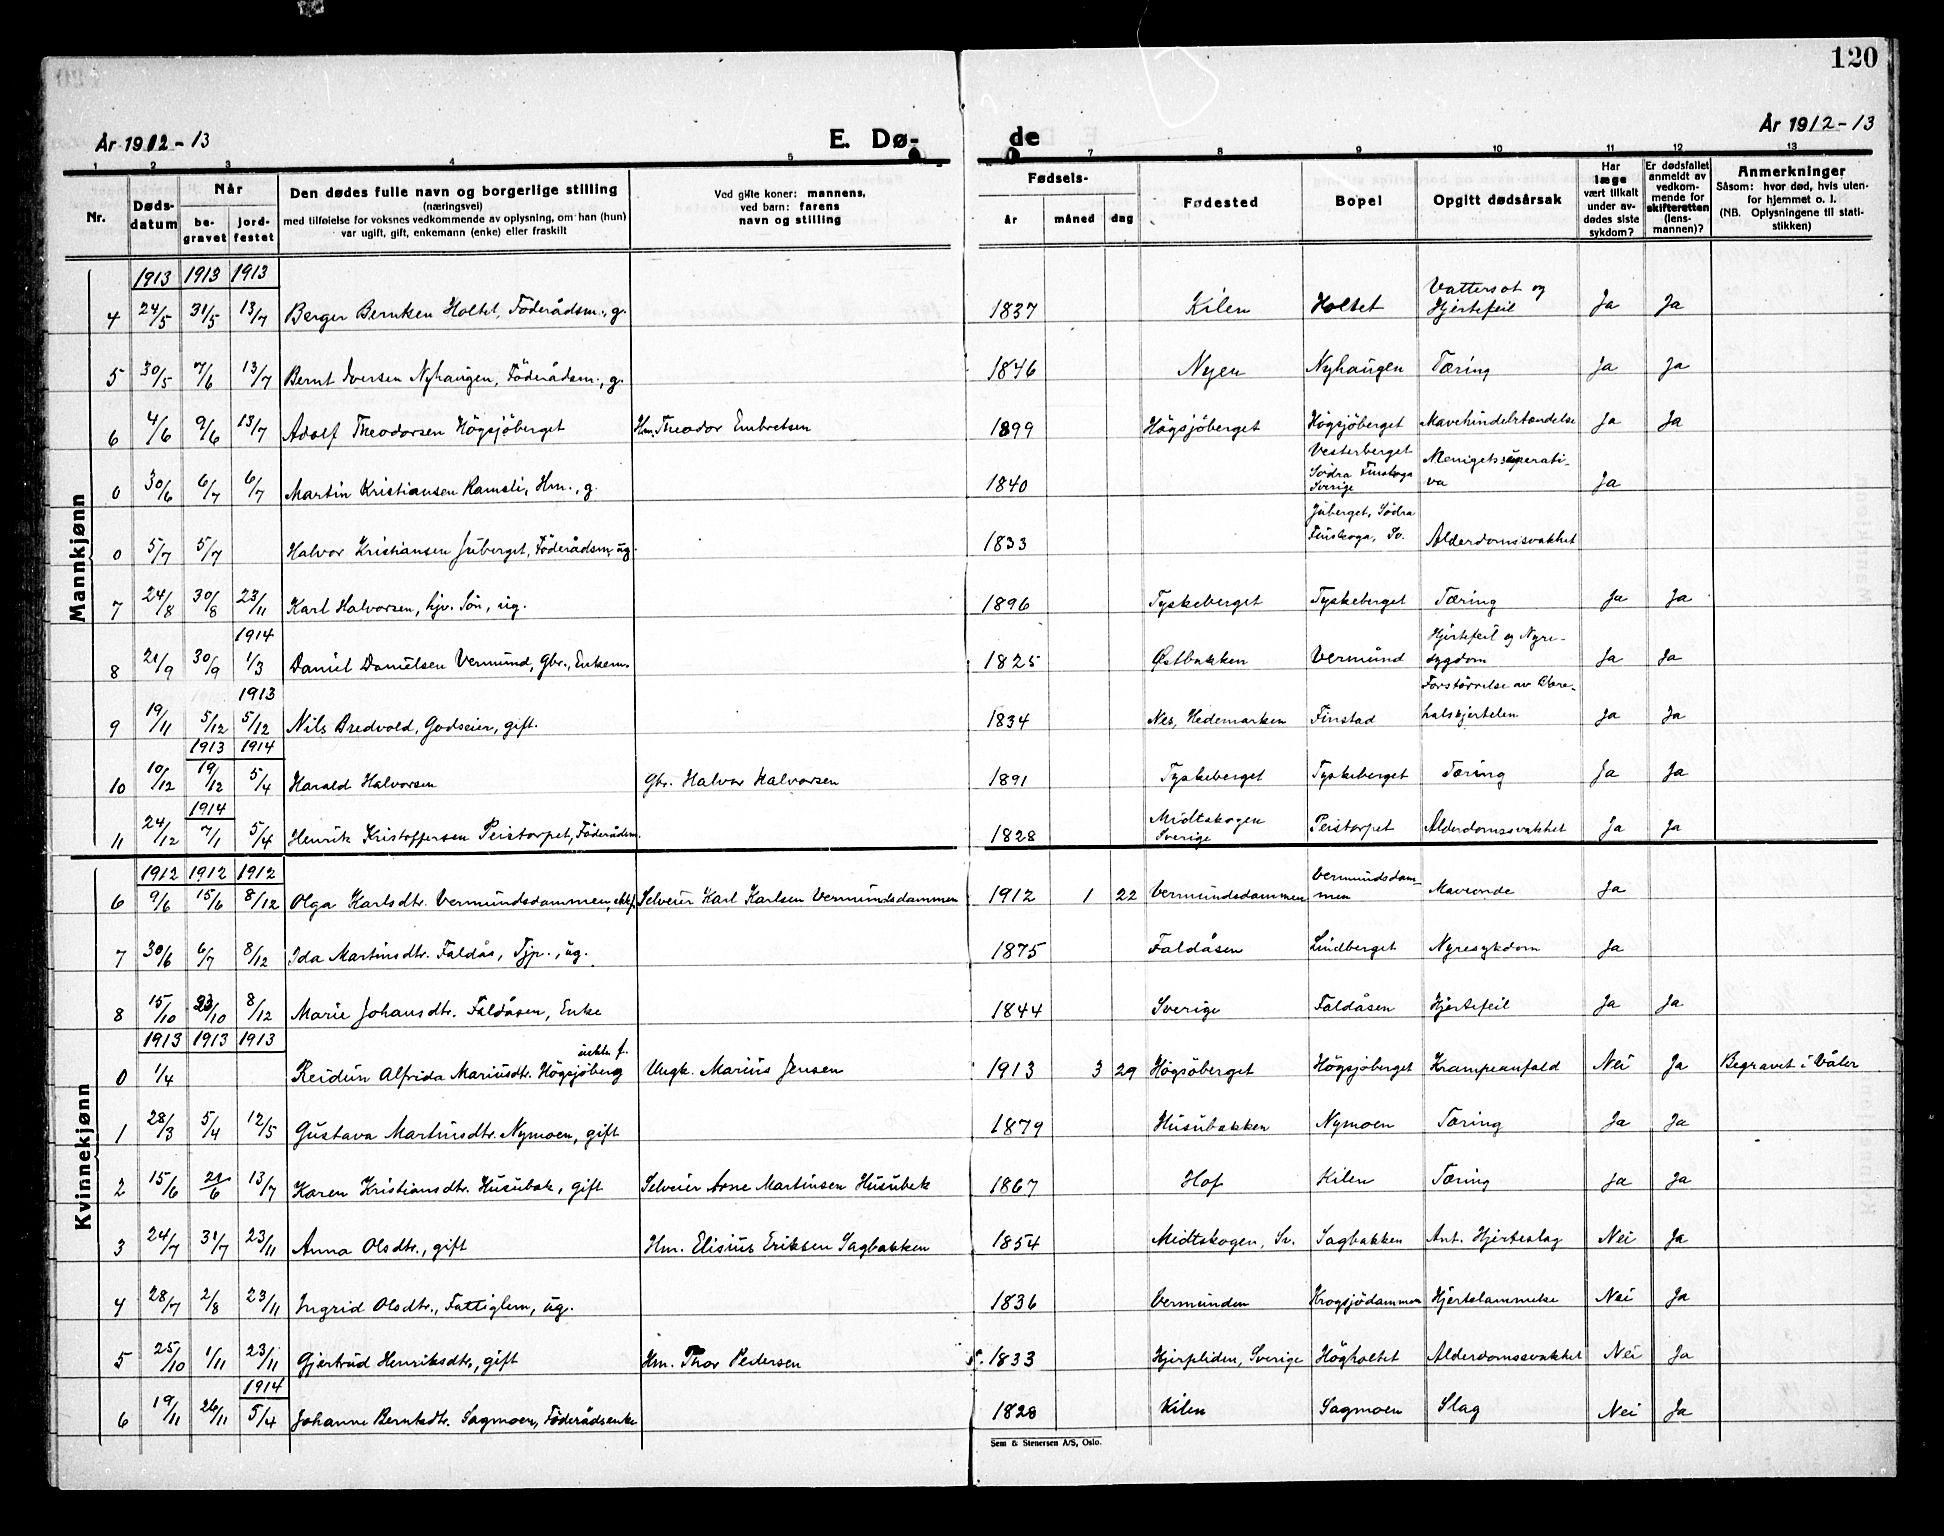 120
År 1912-13 E. Dø- de År 1912-13
1 2 3 4 5 7 8 9 10 11 12 13
Nr. Dødsdatum Når begravet jordfestet Den dødes fulle navn og borgerlige stilling (næringsvei) med tilføielse for voksnes vedkommende av oplysning, om han (hun) var ugift, gift, enkemann (enke) eller fraskilt Ved gifte koner: mannens, ved barn: farens navn og stilling Fødsels- år måned dag Fødested Bopel Opgitt dødsårsak Har læge vært tilkalt under avdødes siste sykdom? Er dødsfallet anmeldt av vedkommende for skifteretten (lensmannen)? Anmerkninger Såsom: hvor død, hvis utenfor hjemmet o. l. (NB. Oplysningene til statistikken)
Mannkjønn
1913 1913 1913
4 24/5 31/5 13/7 Berger Berntsen Holtet, Föderådsm., g. 1837 Kilen Holtet Vattersot og Hjertefeil Ja Ja
5 30/5 7/6 13/7 Bernt Iversen Nyhaugen, Föderådsm., g. 1846 Nyen Nyhaugen Tæring Ja Ja
6 4/6 9/6 13/7 Adolf Theodorsen Högsjöberget Hm. Theodor Embretsen 1899 Högsjöberget Högsjöberget Mavehindebetændelse Ja Ja
0 30/6 6/7 6/7 Martin Kristiansen Ramsli, Hm., g. 1840 Vesterberget Södra Finskoga Sverige Ja
0 5/7 5/7 Halvor Kristiansen Juberget, Föderådsm. ug. 1833 Juberget, Södra Finskoga, Sv. Alderdomssvakhet
7 24/8 30/8 23/11 Karl Halvorsen, hjv. Sön, ug. 1896 Tyskeberget Tyskeberget Tæring Ja Ja
1914
8 21/9 30/9 1/3 Daniel Danielsen Vermund, Gbr., Enkem. 1825 Østbakken Vermund Hjertefeil og Nyresygdom Ja Ja
1913
9 19/11 5/12 5/12 Nils Bredvold, Godseier, gift. 1834 Nes, Hedemarken Finstad Forstörrelse av Blærehalskjertelen Ja Ja
1913 1914
10 10/12 19/12 5/4 Harald Halvorsen Gbr. Halvor Halvorsen 1891 Tyskeberget Tyskeberget Tæring Ja Ja
1914
11 24/12 7/1 5/4 Henrik Kristoffersen Peistorpet, Föderådsm. 1828 Midtskogen Sverige Peistorpet Alderdomssvakhet Ja Ja
Kvinnekjønn
1912 1912 1912
6 9/6 15/6 8/12 Olga Karlsdtr. Vermundsdammen, ektf. Selveier Karl Karlsen Vermundsdammen 1912 1 22 Vermundsdammen Vermundsdammen Maveonde Ja
7 30/6 6/7 8/12 Ida Martinsdtr. Faldås, Tjp., ug. 1875 Faldåsen Lindberget Nyresykdom Ja
8 15/10 23/10 8/12 Marie Johansdtr. Faldåsen, Enke 1844 Sverige Faldåsen Hjertefeil Ja Ja
1913 1913 1913
0 1/4 Reidun Alfrida Mariusdtr. Högsjöberg uekte f. Ungk. Marius Jensen 1913 3 29 Högsöberget Högsjöberget Krampeanfald Nei Ja Begravet i Våler
1 28/3 5/4 12/5 Gustava Martinsdtr. Nymoen, gift 1879 Husubakken Nymoen Tæring Ja Ja
2 15/6 21/6 13/7 Karen Kristiansdtr. Husubak, gift Selveier Arne Martinsen Husubek 1867 Hof Kilen Tæring Ja Ja
3 24/7 31/7 23/11 Anna Olsdtr., gift Hm. Elisius Eriksen Sagbakken 1854 Midtskogen, Sv. Sagbakken Ant. Hjerteslag Nei Ja
4 28/7 2/8 23/11 Ingrid Olsdtr., Fattiglem, ug. 1836 Vermunden Krogsjödammen Hjertelammelse Nei Ja
5 25/10 1/11 23/11 Gjertrud Henriksdtr., gift Hm. Thor Pedersen 1833 Hjerpliden, Sverige Högholtet Alderdomssvakhet Nei Ja
1914
6 19/11 26/11 5/4 Johanne Berntsdtr. Sagmoen, Föderådsenke 1828 Kilen Sagmoen Slag Nei Ja
Sem & Stenersen A/S, Oslo.